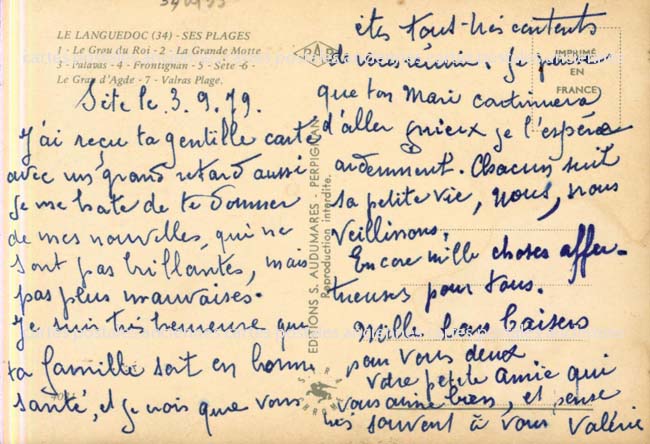 LE LANGUEDOC (34) - SES PLAGES
1 - Le Grou du Roi - 2 - La Grande Motte
3 - Palavas - 4 - Frontignan - 5 - Sète - 6 -
Le Grau d'Agde - 7 - Valras Plage.
Sète le 3.9.79.
J'ai reçu ta gentille carte
avec un grand retard aussi
je me hate de te donner
de mes nouvelles, qui ne
sont pas brillantes, mais
pas plus mauvaises.
Je suis très heureuse que
ta famille soit en bonne
santé, et je vois que vous
EDITIONS S. AUDUMARES - PERPIGNAN
Reproduction interdite.
IMPRIMÉ
EN
FRANCE
êtes tous très contents
Je pense
que ton Mari continuera
d'aller mieux je l'espère
ardemment. Chacun suit
sa petite vie, nous, nous
veillissons.
Encore mille choses affec-
tueuses pour tous.
Mille bons baisers
pour vous deux
votre petite amie qui
vous aime bien, et pense
très souvent à vous Valérie